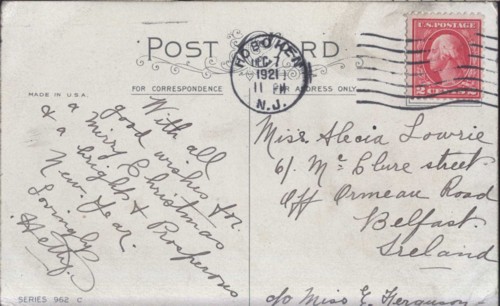 POST CARD
FOR CORRESPONDENCE
FOR ADDRESS ONLY
MADE IN U.S.A.
HOBOKEN
DEC 7
1921
11 PM
N.J.
U.S. POSTAGE
2 CENTS 2
With all
good wishes for
a Merry Christmas
& a bright & Prosperous
New Year.
Lovingly
Hetty.
Miss Alecia Lowrie
61. Mc Clure street.
Off Ormeau Road
Belfast.
Ireland
c/o Miss E. Ferguson
SERIES 962 C